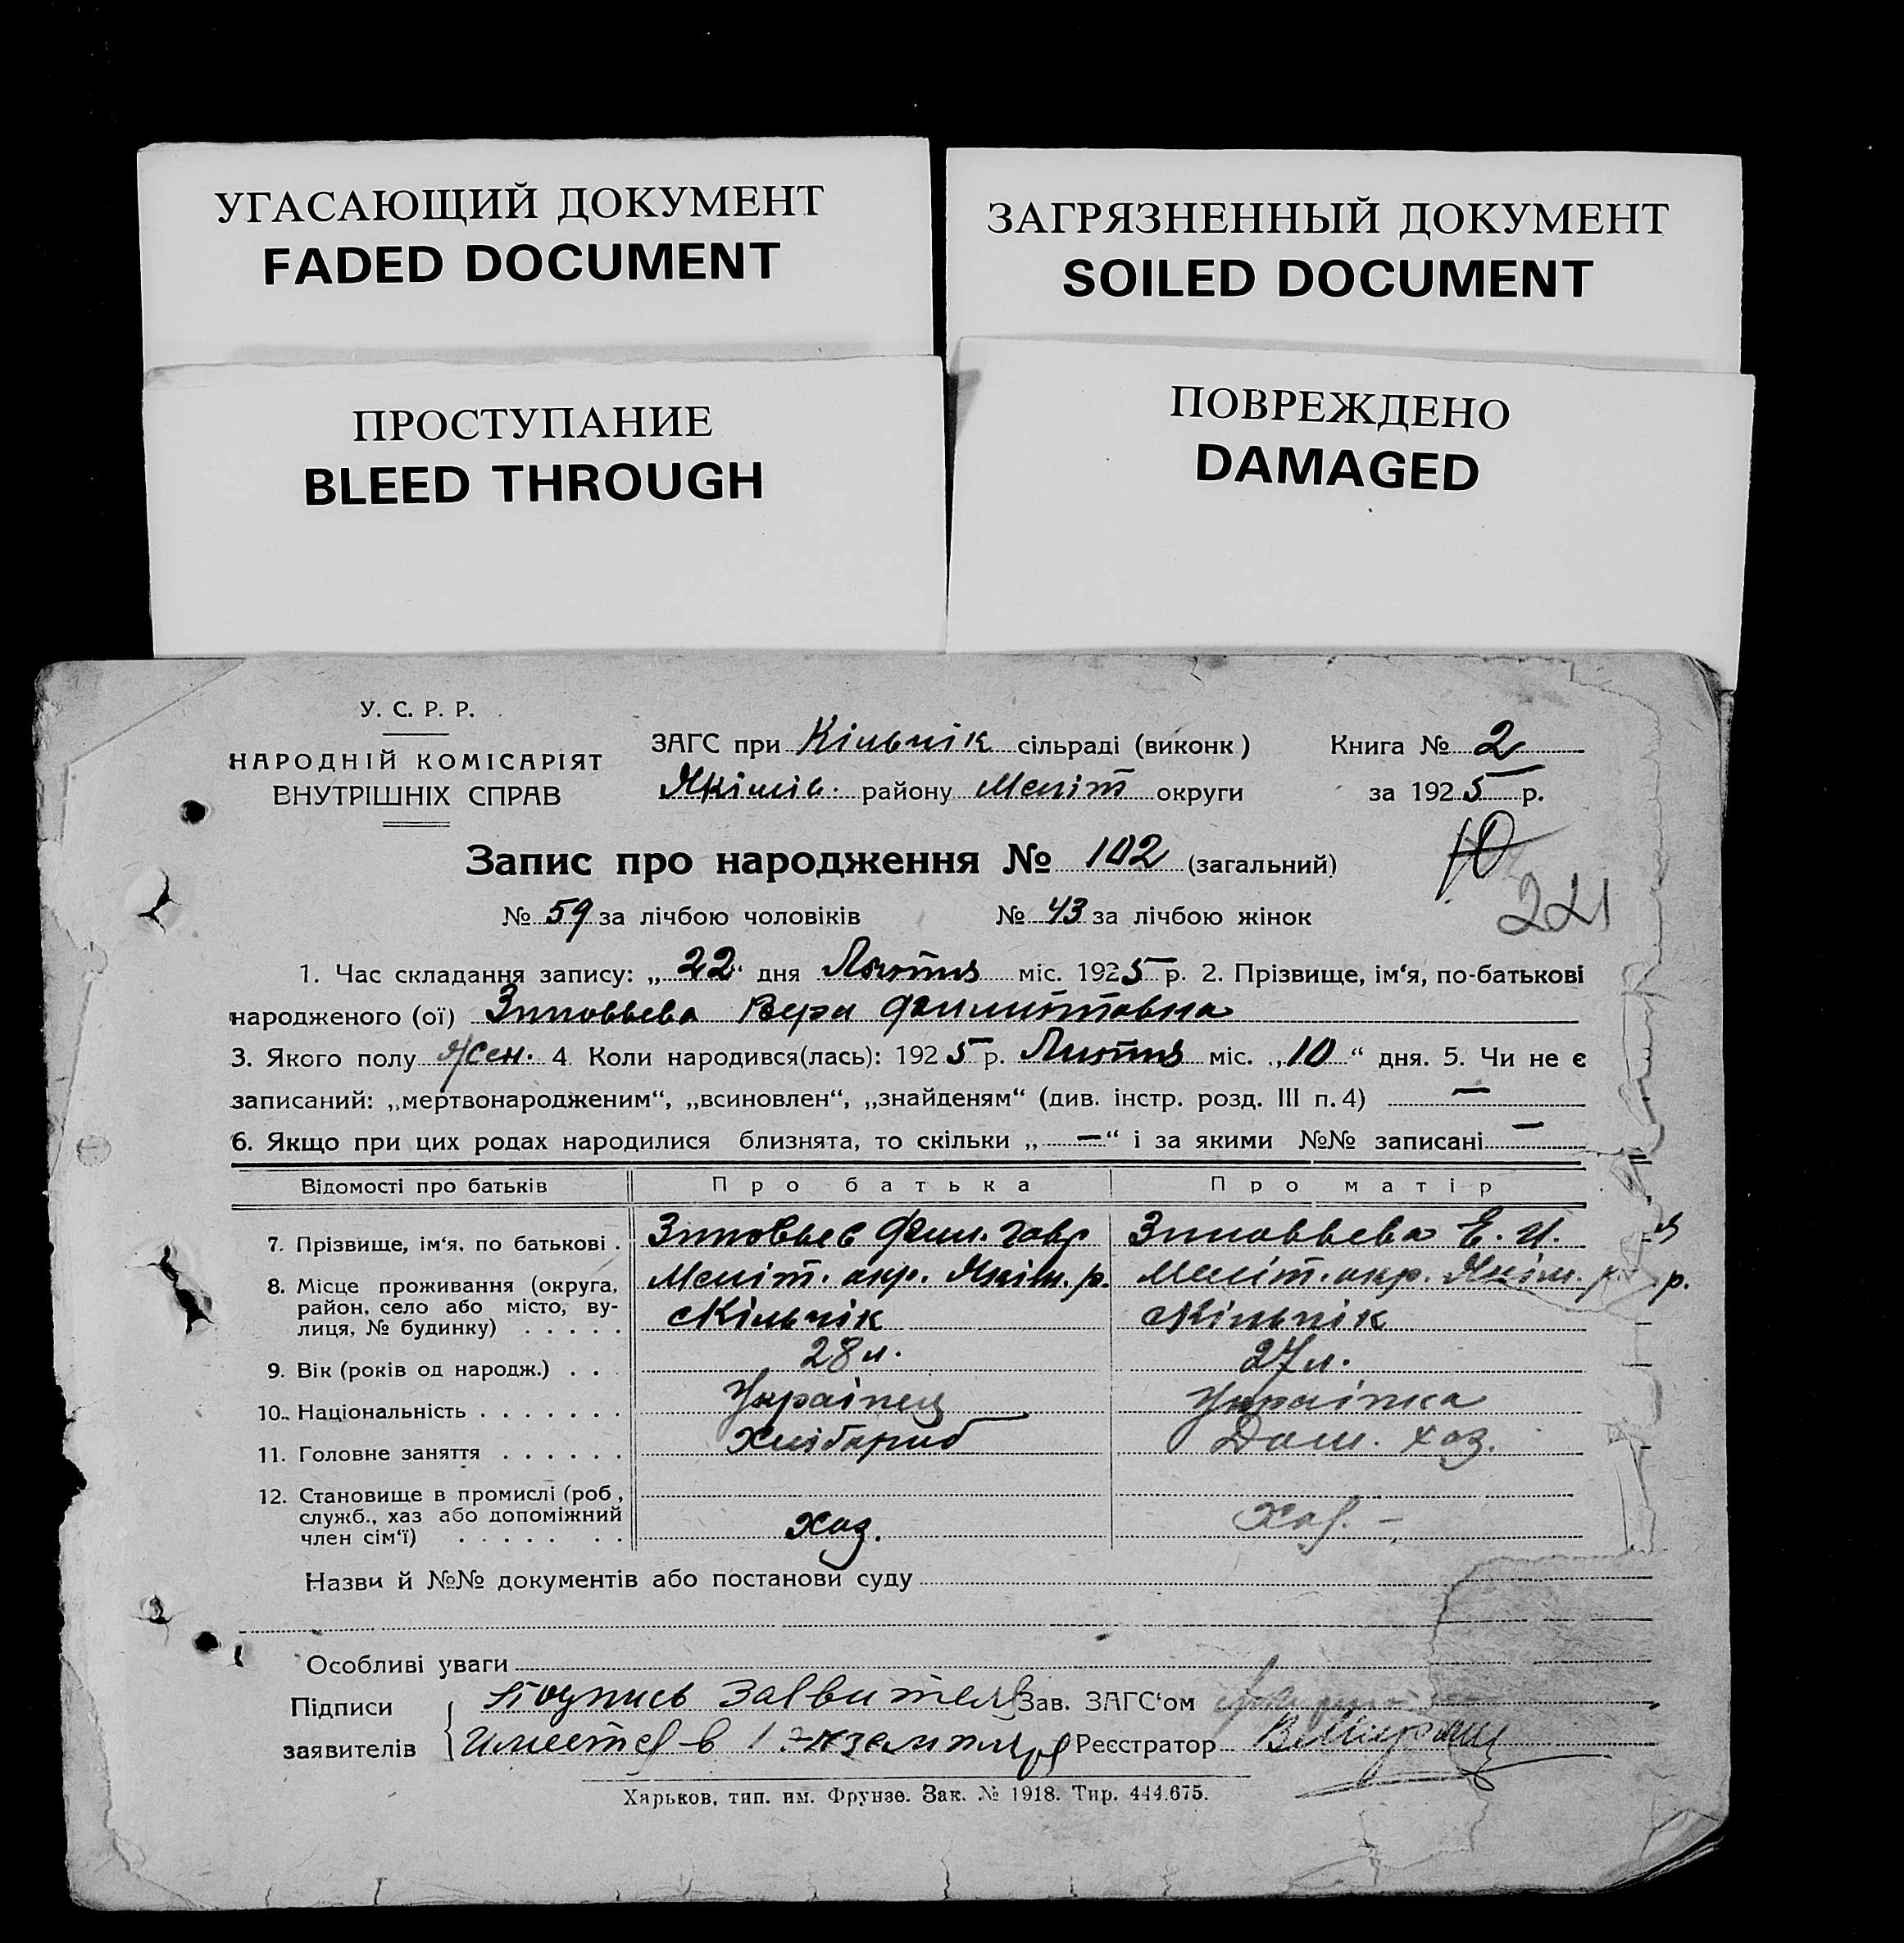 УГАСАЮЩИЙ ДОКУМЕНТ
FADED DOCUMENT
ЗАГРЯЗНЕННЫЙ ДОКУМЕНТ
SOILED DOCUMENT
ПРОСТУПАНИЕ
BLEED THROUGH
ПОВРЕЖДЕНО
DAMAGED
У. С. Р. Р.
НАРОДНІЙ КОМІСАРІЯТ
ВНУТРІШНІХ СПРАВ
ЗАГС при Кільчік сільраді (виконк) Книга № 2
Якімів. району Меліт округи за 1925 р.
Запис про народження № 102 (загальний)
10
221
№ 59 за лічбою чоловіків № 43 за лічбою жінок
1. Час складання запису: „22" дня Лютня міс. 1925 р. 2. Прізвище, ім'я, по-батькові
народженого (ої) Зиновьева Вера Филиповна
3. Якого полу Жен. 4 Коли народився(лась): 1925 р. Лютня міс. „10" дня. 5. Чи не є
записаний: „мертвонародженим", „всиновлен", „знайденям" (див. інстр. розд. III п. 4) —
6. Якщо при цих родах народилися близнята, то скільки „—" і за якими №№ записані —
Відомості про батьків Про батька Про матір
7. Прізвище, ім'я, по батькові . Зиновьев Фил. Гавр Зиновьева Е. И.
8. Місце проживання (округа, Меліт. окр. Якім. р. Меліт. окр. Якім. р.
район, село або місто, ву-
лиця, № будинку) . . . . . с Кільчік с Кільчік
9. Вік (років од народж.) . . . 28 л. 27 л.
10. Національність . . . . . . . Українец Українка
11. Головне заняття . . . . . . Хлібароб Дом. хоз.
12. Становище в промислі (роб.,
служб., хаз або допоміжний
член сім'ї) . . . . . . . хоз. Хоз. —
Назви й №№ документів або постанови суду
Особливі уваги
Підписи Подпись заявителя Зав. ЗАГС'ом
заявителів Имеется в 1 экземпляре Реєстратор
Харьков, тип. им. Фрунзе. Зак. № 1918. Тир. 444.675.